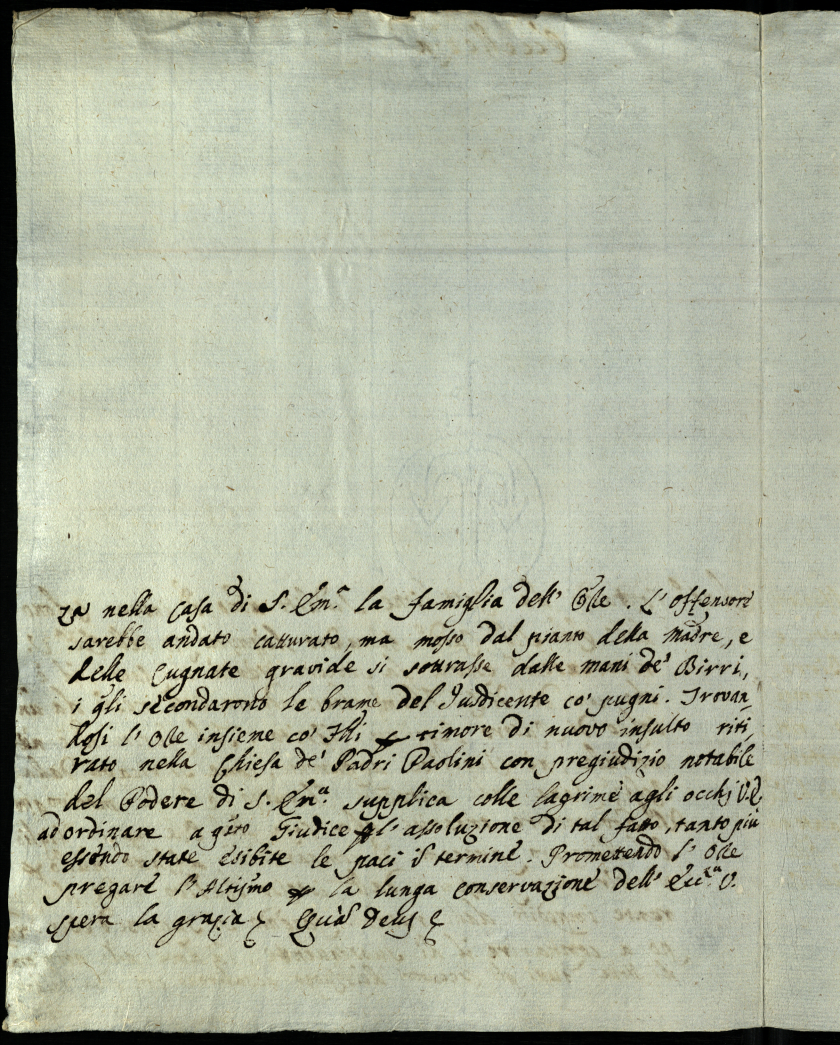 za nella Casa di S. Em.ª la famiglia dell' Ore. L'Offensore
sarebbe andato catturato, ma mosso dal pianto della madre, e
delle Cugnate gravide si sourasse dalle mani de' Birri,
i q̃li secondarono le brame del Iusdicente co' pugni. Trovan,
dosi l' Ore insieme co' Fl̃i p timore di nuovo insulto riti,
rato nella Chiesa de' Padri Paolini con pregiudizio notabile
del Podere di S. Em.ª supplica colle lagrime agli occhj V.E.
ad ordinare a q̃sto Giudice p l' assoluzione di tal fatto, tanto più
essendo state esibite le paci in termine. Promettendo l' Ore
pregare l' Altissmo p la lunga conservazione dell' Ecc.ª V.
spera la grazia Quã Deus